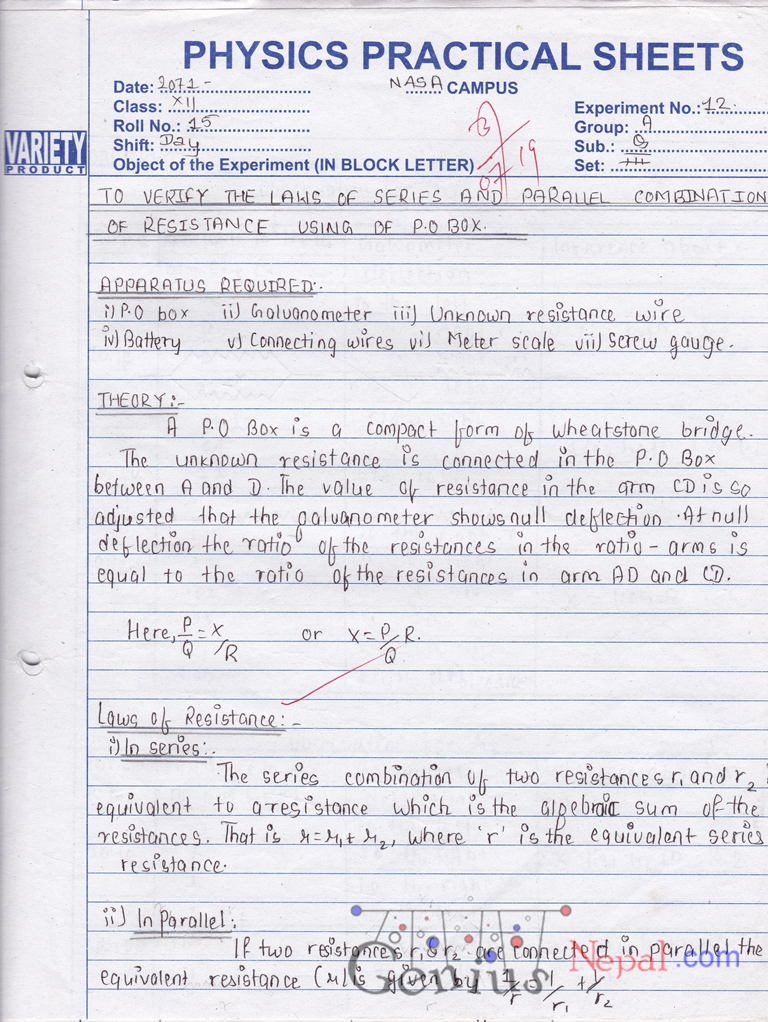 PHYSICS PRACTICAL SHEETS
Date: 2071 -
NASA CAMPUS
Class: XII
Experiment No.: 12.
Roll No.: 15
Group: A
Shift: Day
Sub.:
VARIETY
PRODUCT
Object of the Experiment (IN BLOCK LETTER)
Set:
TO VERIFY THE LAWS OF SERIES AND PARALLEL COMBINATION
OF RESISTANCE USING OF P.O BOX.
APPARATUS REQUIRED:-
i) P.O box ii) Galvanometer iii) Unknown resistance wire
iv) Battery v) Connecting wires vi) Meter scale vii) Screw gauge.
THEORY:-
A P.O Box is a compact form of wheatstone bridge.
The unknown resistance is connected in the P.O Box
between A and D. The value of resistance in the arm CD is so
adjusted that the galvanometer shows null deflection. At null
deflection the ratio of the resistances in the ratio - arms is
equal to the ratio of the resistances in arm AD and CD.
Here, P/Q = X/R or X = P/Q R.
Laws of Resistance:-
i) In series:-
The series combination of two resistances r1 and r2
equivalent to a resistance which is the algebraic sum of the
resistances. That is r = r1 + r2, where 'r' is the equivalent series
resistance.
ii) In Parallel:
If two resistances r1 & r2 are connected in parallel the
equivalent resistance (r) is given by 1/r = 1/r1 + 1/r2
Genius Nepal.com